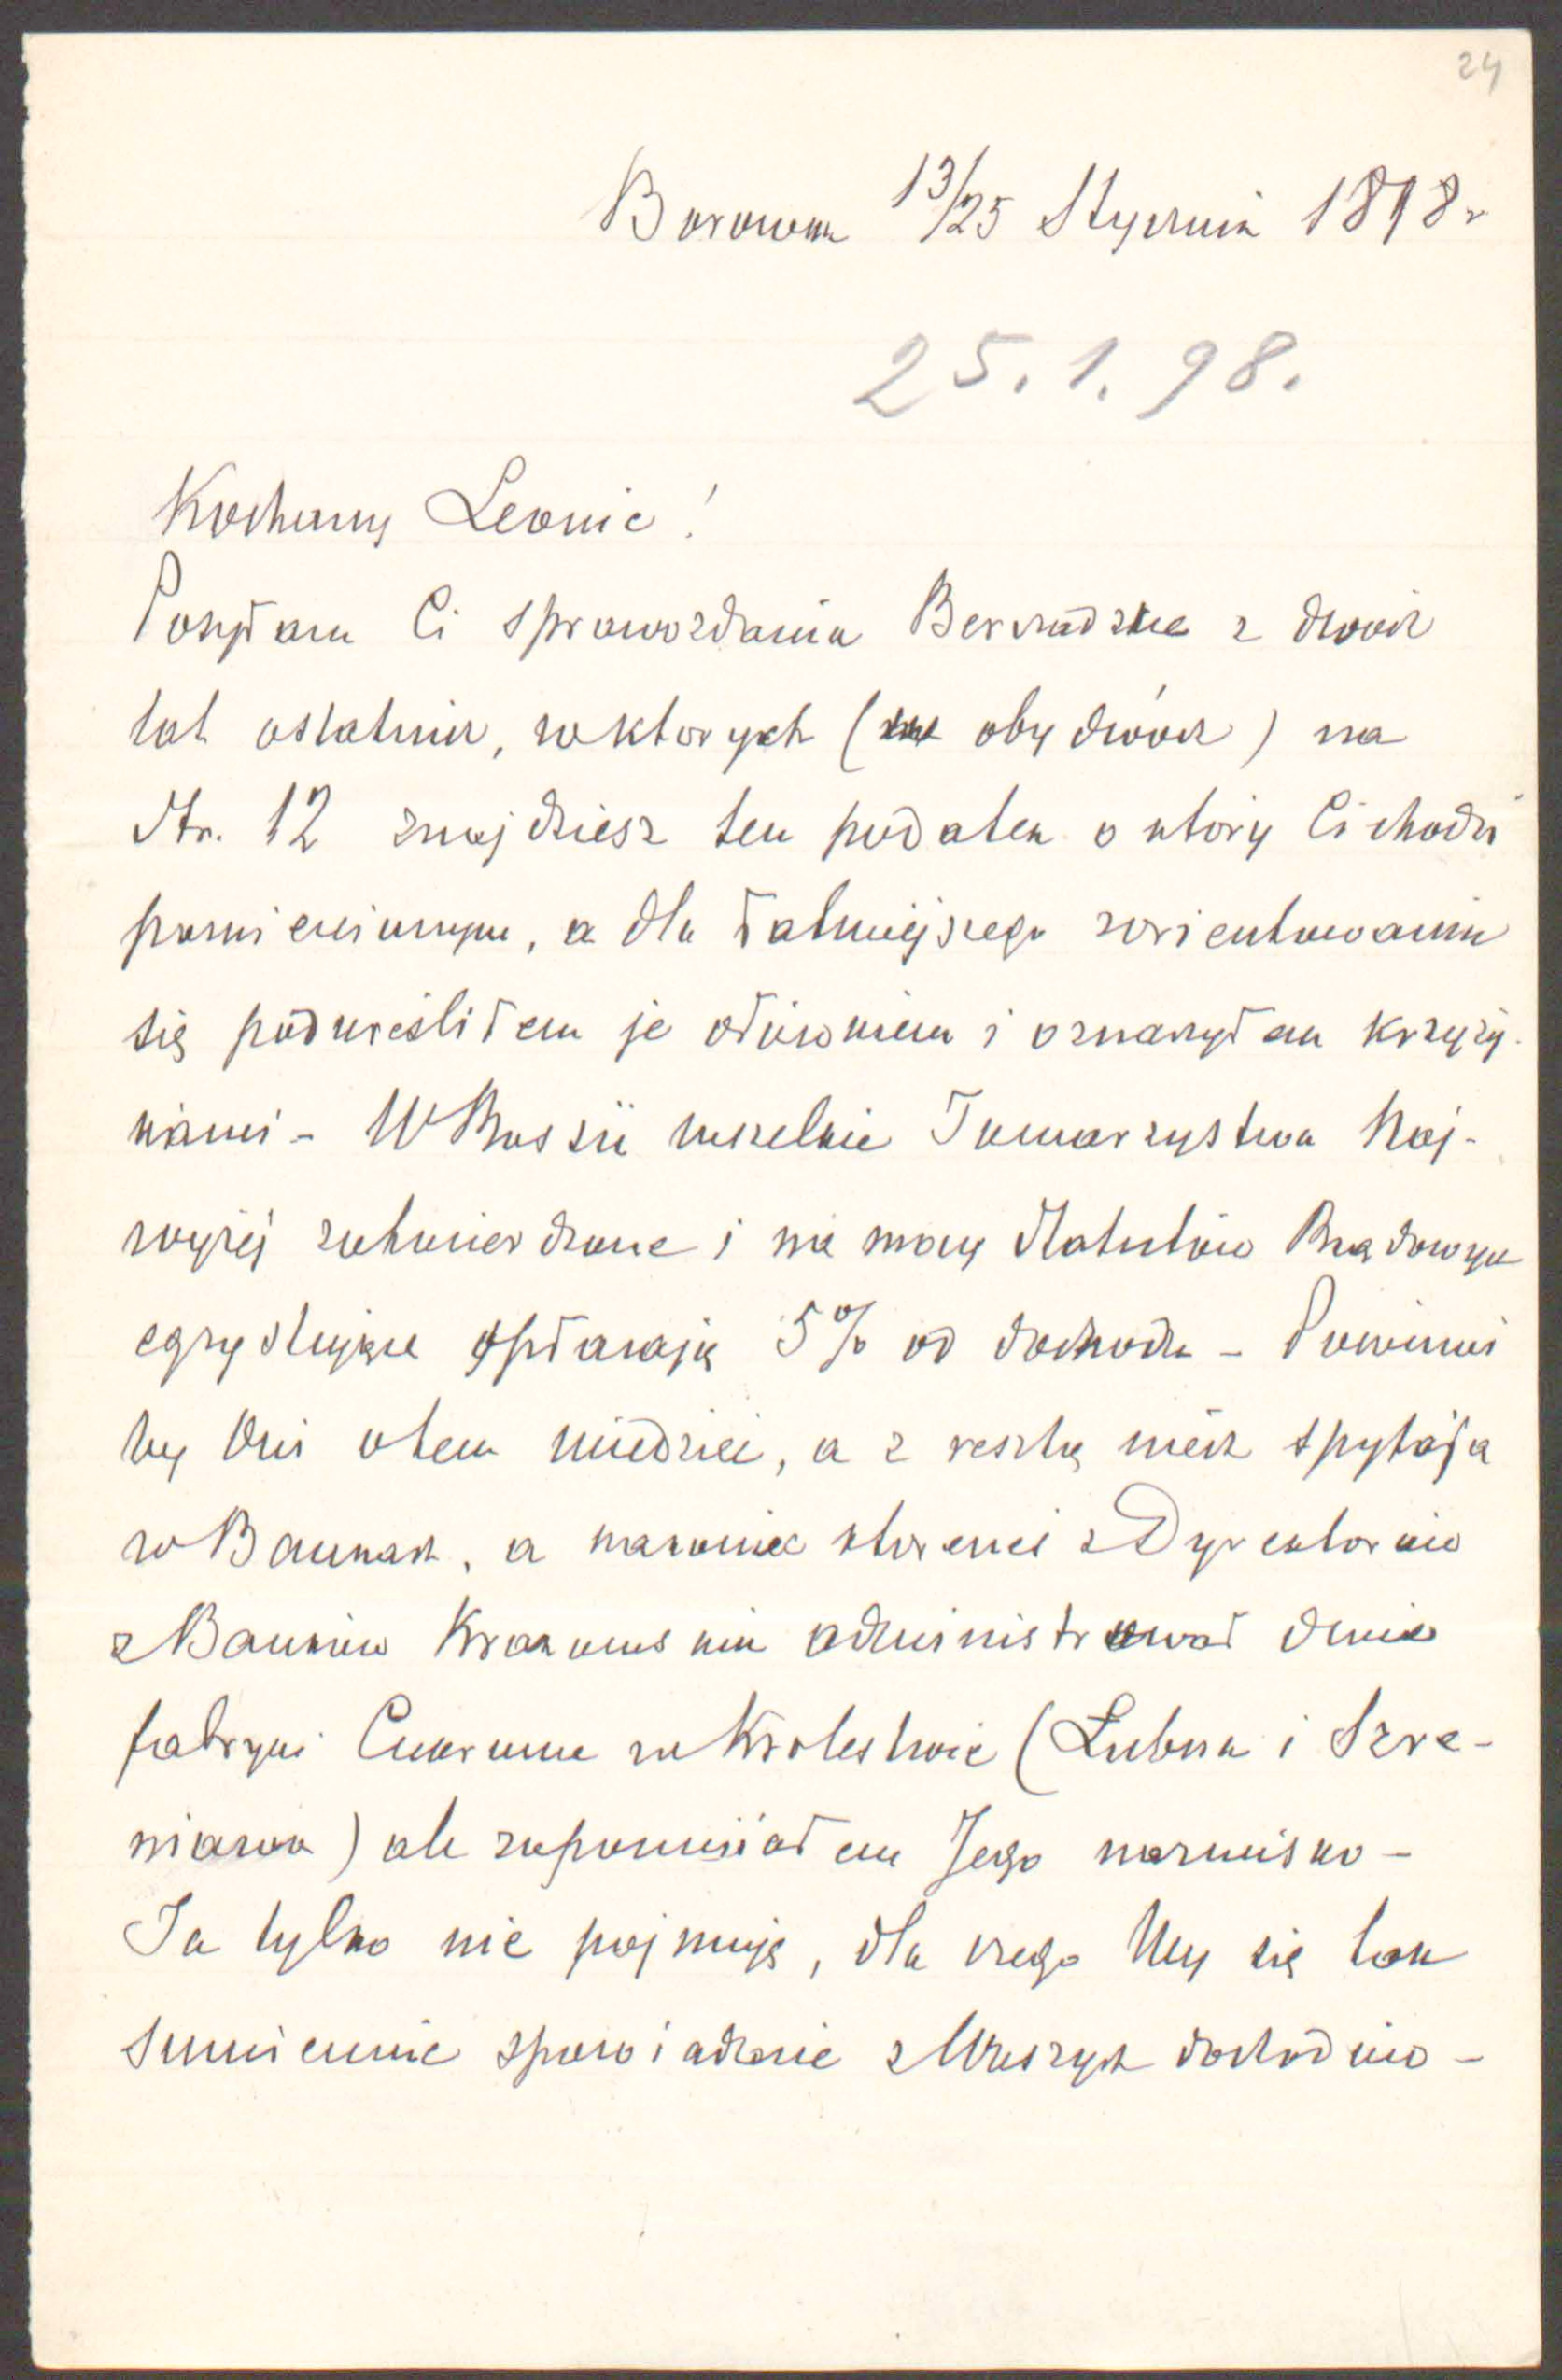 24
Borowa 13/25 Stycznia 1898 r
25.1.98.
Kochany Leonie!
Posyłam Ci sprawozdania Berszadzkie z dwóch
lat ostatnich, w których (obydwóch) na
Str. 12 znajdziesz ten podatek o który Ci chodzi
pomieniony, a dla łatwiejszego zorientowania
się podkreśliłem je ołówkiem i oznaczyłem krzyży-
kami - W Rossii wszelkie Towarzystwa Naj-
wyżej zatwierdzone i na mocy Statutów Rządowych
egzystujące opłacają 5% od dochodu - Powinni
by Oni o tem wiedzieć, a z resztą niech spytają
w Bankach, a nakoniec któremś z Dyrektorów
z Banków Krakowskich administrował dwie
fabryki Cukrowe w Krolestwie (Łubna i Szre-
niawa) ale zapomniałem Jego nazwisko -
Ja tylko nie pojmuję, dla czego Wy się tak
sumiennie spowiadacie z Waszych dochodów -